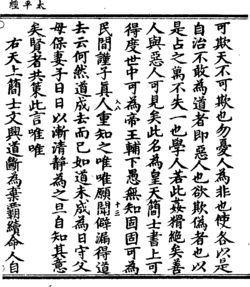 太平經
可欺天不可欺也勿憂人為非也使各以是
自治不敢為道者即惡人也欲欺偽者也以
是占之萬不失一也學人若此姦猾絕矣善
人與惡人可見矣此名為皇天簡士書上可
得度世中可為帝王輔下愚無知固固可為
八
十三
民間謹子真人重知之唯唯願聞僻漏得道
去云何然道成去而已如道未成為日守父
母保妻子日日以漸清靜為之且自知其意
矣賢者共策此言唯唯
右天上簡士文興道斷為棄霸續命人自